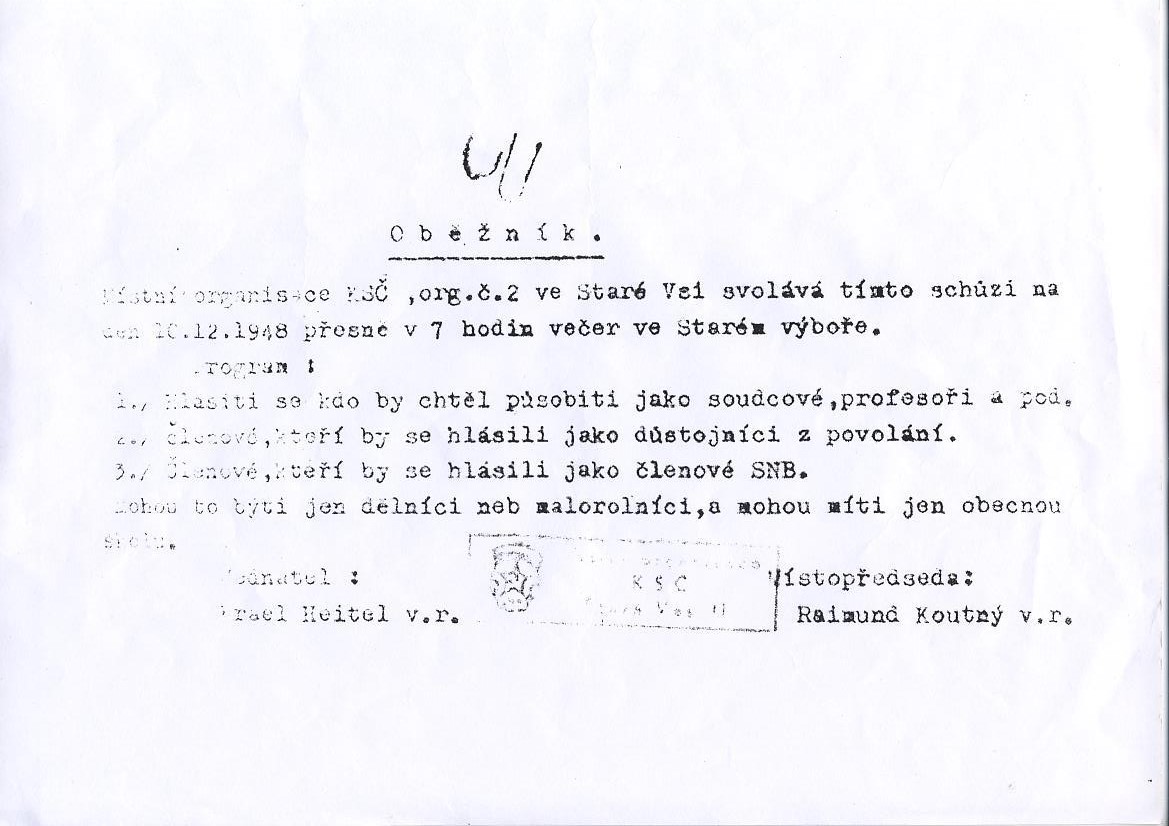 Oběžník.
Místní organisace KSČ ,org.č.2 ve Staré Vsi svolává tímto schůzi na
den 10.12.1948 přesně v 7 hodin večer ve Starém výboře.
Program :
1./ Hlásiti se kdo by chtěl působiti jako soudcové,profesoři a pod.
2./ Členové,kteří by se hlásili jako důstojníci z povolání.
3./ Členové,kteří by se hlásili jako členové SNB.
Mohou to býti jen dělníci neb malorolníci,a mohou míti jen obecnou
školu.
Jednatel : Místopředseda:
Heitel v.r. Raimund Koutný v.r.
KSČ
Stará Ves II